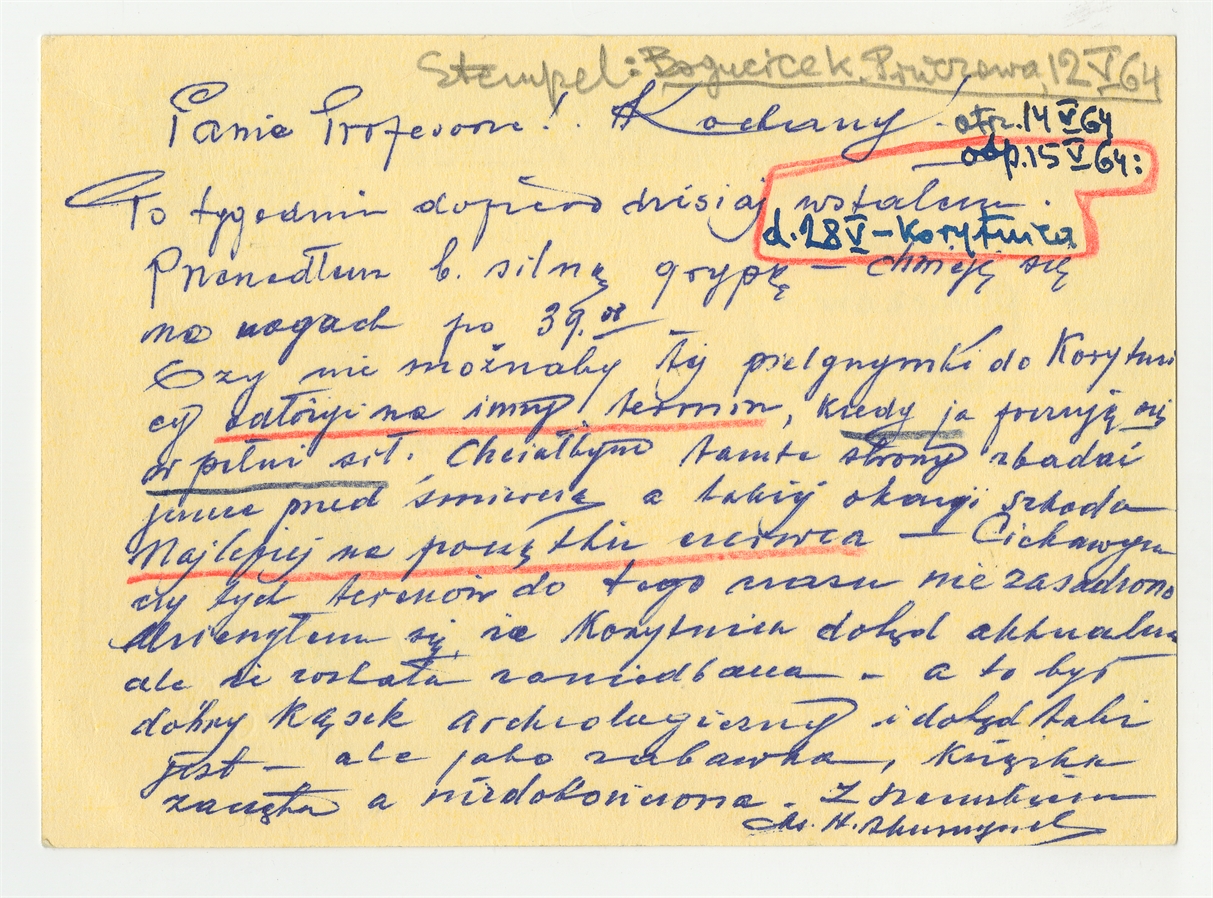 Stempel: Bogucicek. Pińczowa, 12 V 64
Panie Profesorze! Kochany
otrz. 14 V 64
odp. 15 V 64:
To tygodniu dopiero dzisiaj wstałem.
d. 28 V – Korytnica
Przeszedłem b. silną grypę – chwieję się
na nogach po 39.
Czy nie możnaby tej pielgrzymki do Korytni
cy odłożyć na inny termin, kiedy ja poczuję się
w pełni sił. Chciałbym tamte strony zbadać
jeszcze przed śmiercią a takiej okazji szkoda
Najlepiej na początku czerwca – Ciekawym
czy tych terenów do tego czasu nie zasadzono
że Korytnica dotąd aktualna
ale że została zaniedbana – a to był
dobry kąsek archeologiczny i dotąd taki
jest – ale jako zabawka, książka
zaczęta a niedokończona. Z szacunkiem